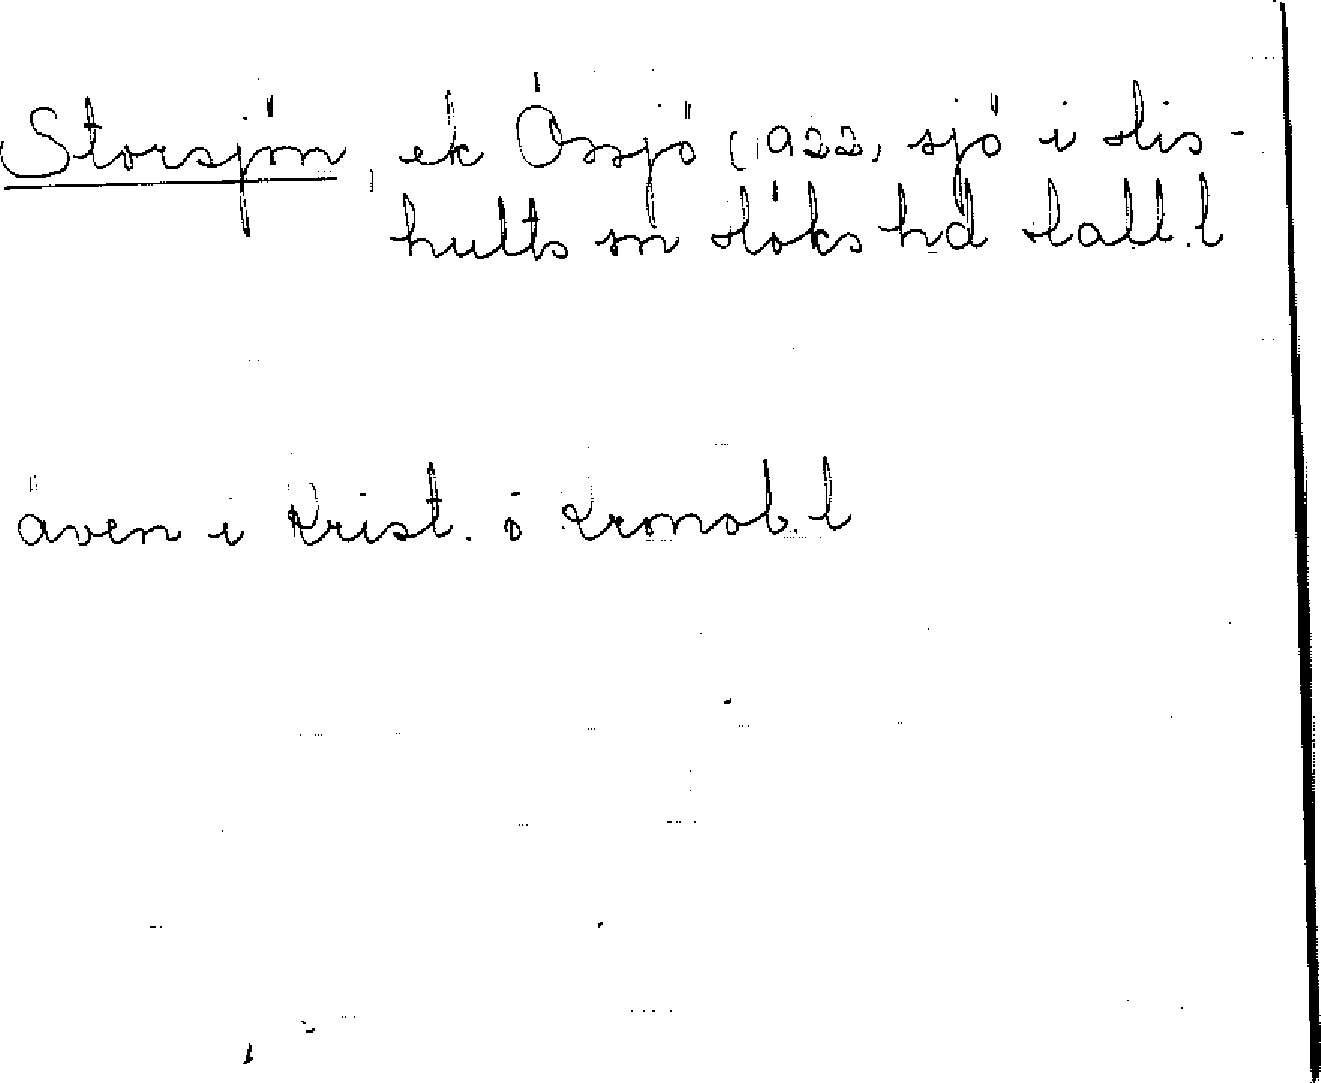 Storsjön, ek Össjö (1922) sjö i His-
hults sn Höks hd Hall.l
även i Krist. o Kronob.l